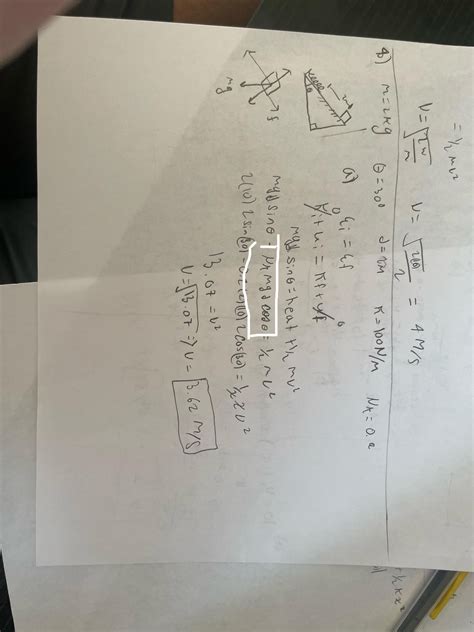 = ½ mv²
V = √2W/m  V = √2(16)/2 = 4 m/s
8) m = 2kg θ = 30° d = 2m K = 100N/m
a) Ei = Ef
Ki + Ui = Kf + Uf
0 0
mgd sinθ = heat + ½ mv²
mgd sinθ - μk mgd cosθ = ½ mv²
2(10)2 sin(30)
2cos(30) = ½ 2 v²
13.07 = v²
V = √13.07 => V = 3.62 m/s
mg
f